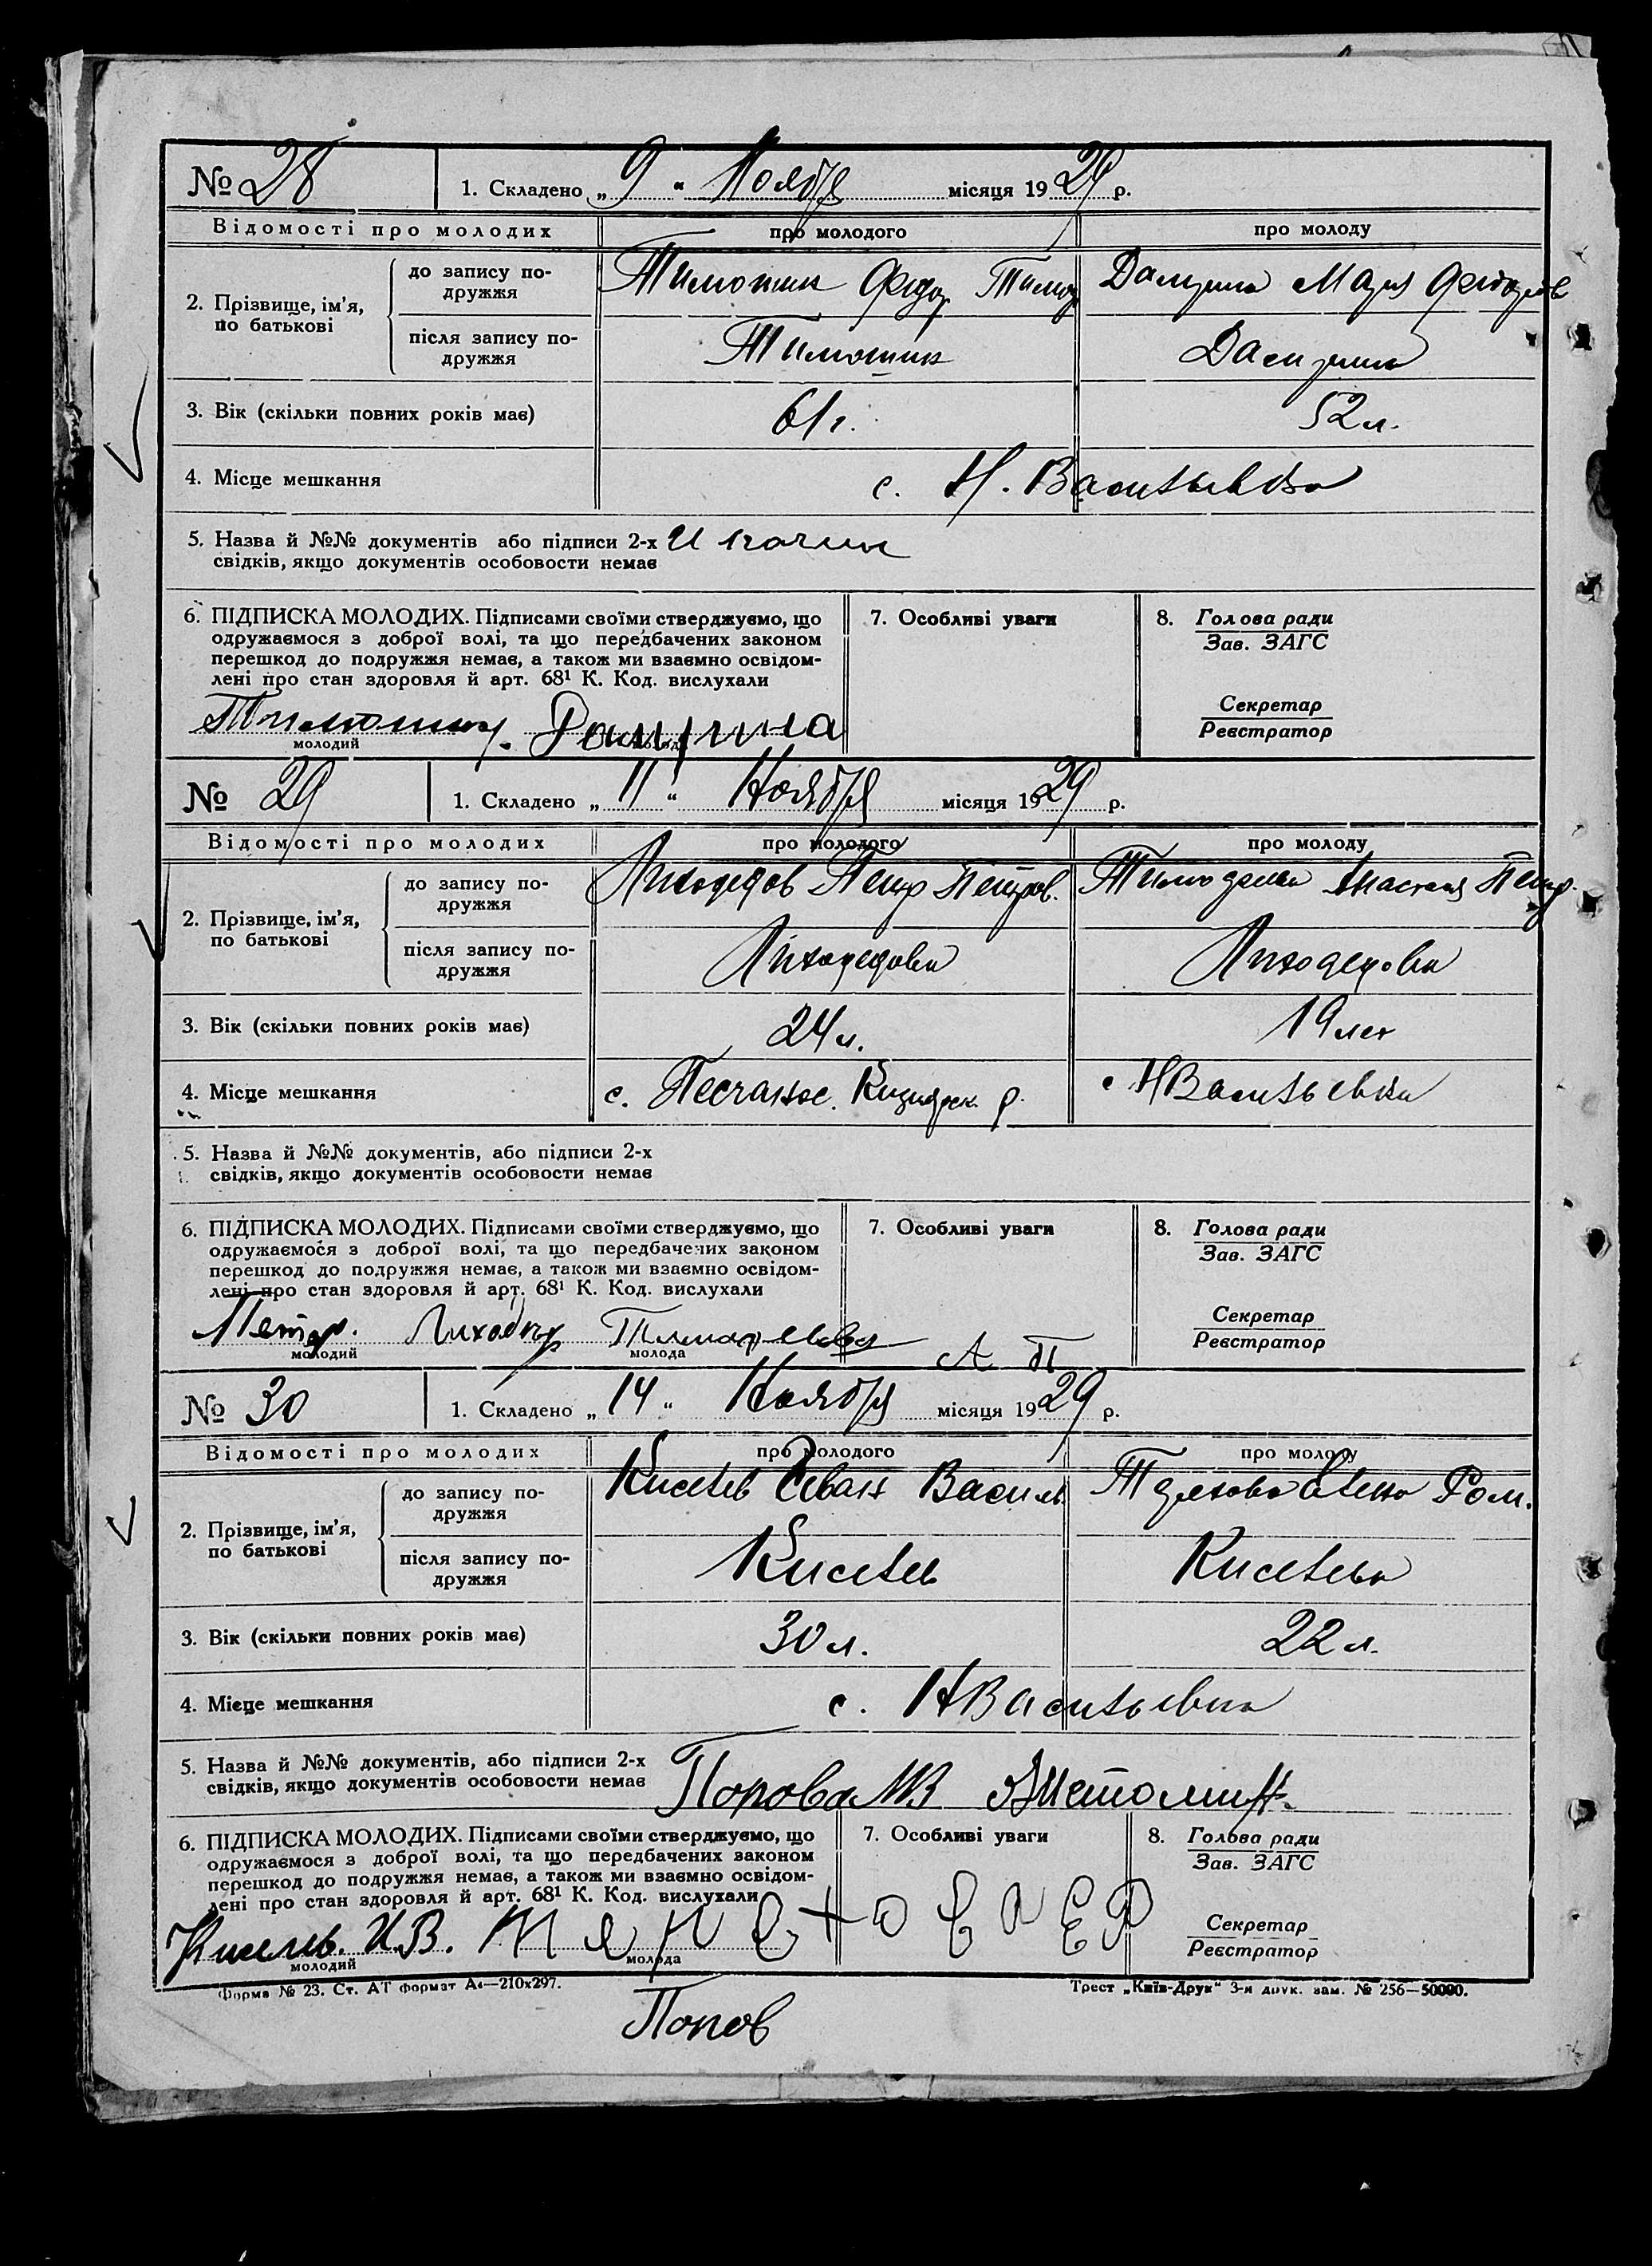 № 28 1. Складено „9“ Ноября місяця 1929 р.
Відомості про молодих про молодого про молоду
2. Прізвище, ім’я, по батькові
до запису подружжя Тимошик Федор Тимоф Мария Федоров
після запису подружжя Тимошик
3. Вік (скільки повних років має) 61 г. 52 л.
4. Місце мешкання с. Н. Васильевка
5. Назва й №№ документів або підписи 2-х
свідків, якщо документів особовости немає
6. ПІДПИСКА МОЛОДИХ. Підписами своїми стверджуємо, що
одружаємося з доброї волі, та що передбачених законом
перешкод до подружжя немає, а також ми взаємно освідом-
лені про стан здоровля й арт. 68¹ К. Код. вислухали
молодий
7. Особливі уваги
8. Голова ради
Зав. ЗАГС
Секретар
Реєстратор
№ 29 1. Складено „11“ Ноября місяця 1929 р.
Відомості про молодих про молодого про молоду
2. Прізвище, ім’я, по батькові
до запису подружжя Лиходедов Петр Петров. Анастасия Петр.
після запису подружжя Лиходедов Лиходедова
3. Вік (скільки повних років має) 24 л. 19 лет
4. Місце мешкання с. Песчаное р. с НВасильевка
5. Назва й №№ документів, або підписи 2-х
свідків, якщо документів особовости немає
6. ПІДПИСКА МОЛОДИХ. Підписами своїми стверджуємо, що
одружаємося з доброї волі, та що передбачених законом
перешкод до подружжя немає, а також ми взаємно освідом-
лені про стан здоровля й арт. 68¹ К. Код. вислухали
Петр. А П
молодий молода
7. Особливі уваги
8. Голова ради
Зав. ЗАГС
Секретар
Реєстратор
№ 30 1. Складено „14“ Ноября місяця 1929 р.
Відомості про молодих про молодого про молоду
2. Прізвище, ім’я, по батькові
до запису подружжя Киселев Иван Василь. Елена Ром.
після запису подружжя Киселев Киселева
3. Вік (скільки повних років має) 30 л. 22 л.
4. Місце мешкання с. НВасильевка
5. Назва й №№ документів, або підписи 2-х
свідків, якщо документів особовости немає Попова МВ
6. ПІДПИСКА МОЛОДИХ. Підписами своїми стверджуємо, що
одружаємося з доброї волі, та що передбачених законом
перешкод до подружжя немає, а також ми взаємно освідом-
лені про стан здоровля й арт. 68¹ К. Код. вислухали
И.В. Е Р
молодий молода
7. Особливі уваги
8. Голова ради
Зав. ЗАГС
Секретар
Реєстратор
Форма № 23. Ст. АТ формат А₄—210х297. Трест „Київ-Друк“ 3-я друк. зам. № 256—50000.
Попов